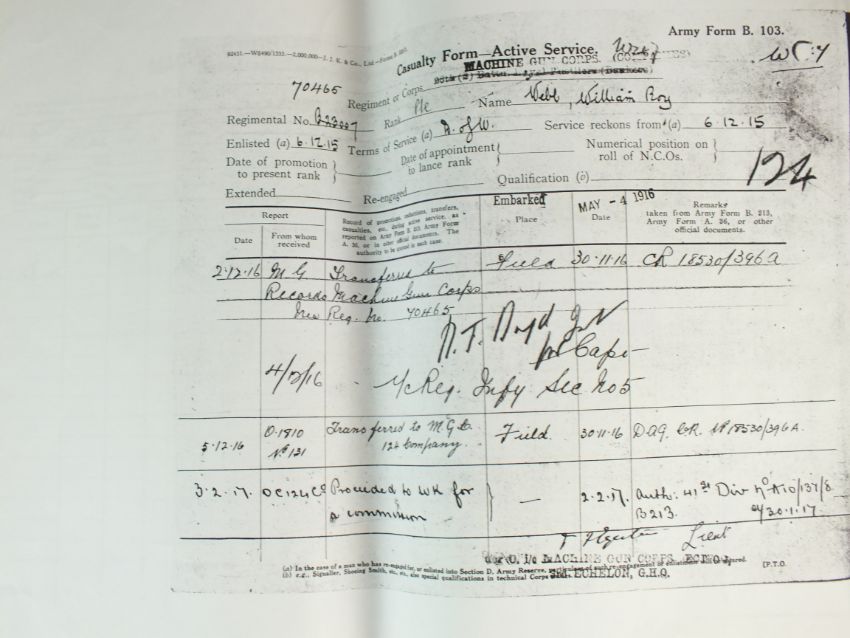 Army Form B. 103.
Casualty Form—Active Service.
MACHINE GUN CORPS.
70465
Regiment or Corps
Rank Pte Name Webb, William Roy
Regimental No.
Enlisted (a) 6.12.15 Terms of Service (a) D. of W. Service reckons from (a) 6.12.15
Date of promotion to present rank
Date of appointment to lance rank
Numerical position on roll of N.C.Os.
Extended Re-engaged Qualification (b)
124
Report
Date
From whom received
Record of promotions, reductions, transfers, casualties, etc., during active service, as reported on Army Form B. 213, Army Form A. 36, or in other official documents. The authority to be quoted in each case.
Embarked
Place
MAY -4 1916
Date
Remarks
taken from Army Form B. 213, Army Form A. 36, or other official documents.
2.12.16 M G Transferred to Field 30.11.16 CR 18530/396A
Records Machine Gun Corps
New Reg. No. 70465
Capt
4/12/16
Infy Sec No 5
5.12.16 O.1810 Transferred to M G C. Field. 30.11.16 DAG. CR. No 18530/396A.
No 131 124 Company.
3.2.17. OC 124 Co Proceeded to UK for — 2.2.17. Auth: 41st Div
a commission B213. 20.1.17.
Lieut
for O. i/c MACHINE GUN CORPS.
3RD ECHELON, G.H.Q.
[P.T.O.
(a) In the case of a man who has re-engaged for, or enlisted into Section D, Army Reserve, particulars of such re-engagement or enlistment will be entered.
(b) e.g., Signaller, Shoeing Smith, etc., etc., also special qualifications in technical Corps